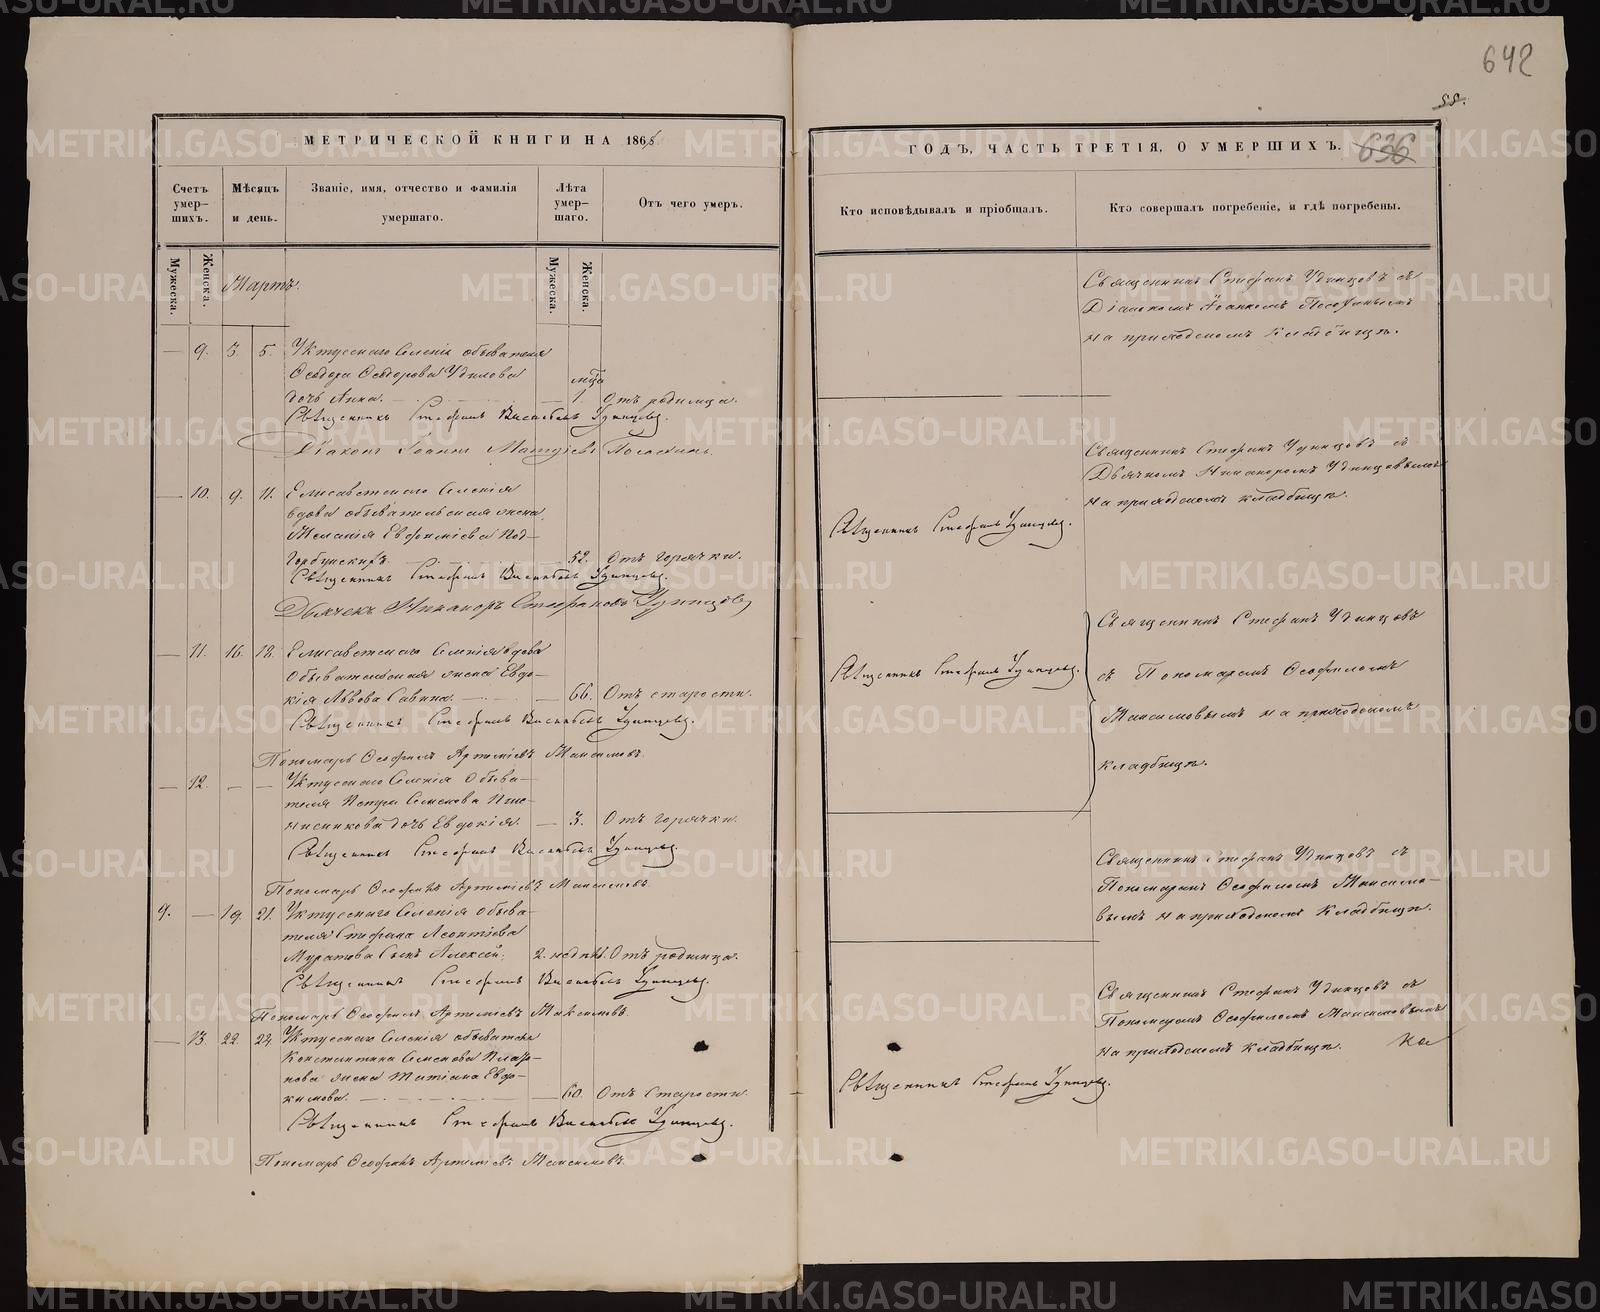 642
55.
МЕТРИЧЕСКОЙ КНИГИ НА 1865
ГОДЪ, ЧАСТЬ ТРЕТІЯ, О УМЕРШИХЪ.
636
Счетъ умер-шихъ.
Мѣсяцъ и день.
Званіе, имя, отчество и фамилія умершаго.
Лѣта умер-шаго.
Отъ чего умеръ.
Кто исповѣдывалъ и пріобщалъ.
Кто совершалъ погребеніе, и гдѣ погребены.
Мужеска.
Женска.
Мужеска.
Женска.
Мартъ.
— 9. 3. 5. Уктусскаго Селенія обывателя
Ѳеодора Ѳедорова Удилова
мца
дочь Анна. — 1. Отъ родимца.
Священникъ Стефанъ Васильевъ Удинцевъ.
Діаконъ Іоаннъ Матѳіевъ
Священникъ Стефанъ Удинцовъ съ
Діакономъ Іоанномъ
на приходскомъ кладбищѣ.
— 10. 9. 11. Елисаветскаго Селенія
вдова обывательская жена
Меланія Евфиміева Под-
горбунскихъ — 52. Отъ горячки.
Священникъ Стефанъ Васильевъ Удинцевъ.
Дьячекъ Никаноръ Стефановъ Удинцовъ
Священникъ Стефанъ Удинцевъ.
Священникъ Стефанъ Удинцовъ съ
Дьячкомъ Никаноромъ Удинцовымъ
на приходскомъ кладбищѣ.
— 11. 16. 18. Елисаветскаго Селенія вдова
Обывательская жена Евдо-
кія Львова Савина. — 66. Отъ старости.
Священникъ Стефанъ Васильевъ Удинцевъ.
Пономарь Ѳеофилъ Артеміевъ Максимовъ.
Священникъ Стефанъ Удинцевъ.
Священникъ Стефанъ Удинцовъ
съ Пономаремъ Ѳеофиломъ
Максимовымъ на приходскомъ
кладбищѣ.
— 12. — — Уктусскаго Селенія Обыва-
теля Петра Семенова
дочь Евдокія. — 3. Отъ горячки.
Священникъ Стефанъ Васильевъ Удинцевъ.
Пономарь Ѳеофилъ Артеміевъ Максимовъ.
9. — 19. 21. Уктусскаго Селенія Обыва-
теля Стефана Леонтіева
Муратова Сынъ Алексѣй. 2. недѣл. Отъ родимца.
Священникъ Стефанъ Васильевъ Удинцевъ.
Пономарь Ѳеофилъ Артеміевъ Максимовъ.
Священникъ Стефанъ Удинцовъ съ
Пономаремъ Ѳеофиломъ Максимо-
вымъ на приходскомъ кладбищѣ.
— 13. 22. 24. Уктусскаго Селенія обывателя
Константина Семенова
жена Татіана Евдо-
кимова. — 60. Отъ Старости.
Священникъ Стефанъ Васильевъ Удинцевъ.
Пономарь Ѳеофилъ Артеміевъ Максимовъ.
Священникъ Стефанъ Удинцевъ.
Священникъ Стефанъ Удинцовъ съ
Пономаремъ Ѳеофиломъ Максимовымъ
на приходскомъ кладбищѣ. ка
METRIKI.GASO-URAL.RU